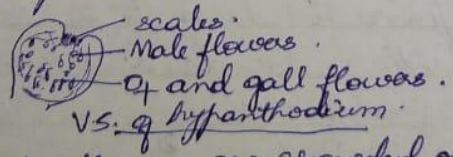 scales.
Male flowers.
♀ and gall flowers.
V.S. of hypanthodium.